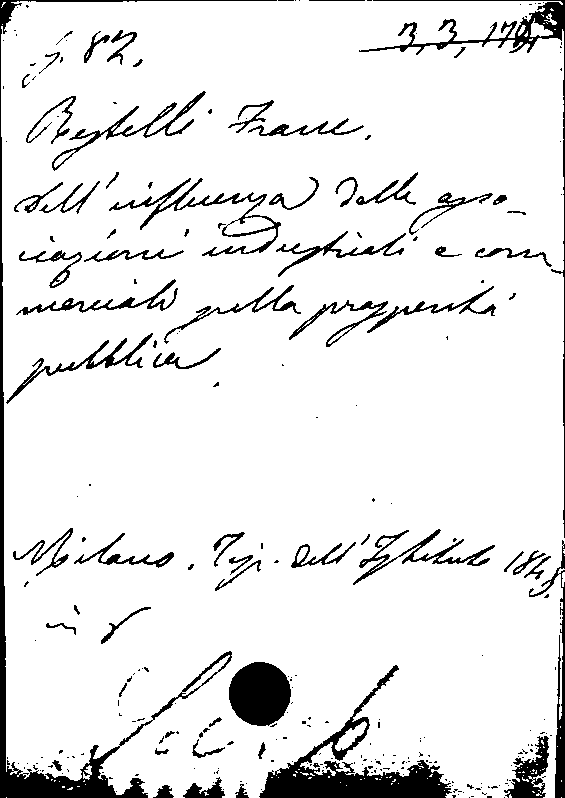 g. 82.
3, 3, 179
Restelli Franc.
Dell'influenza delle asso-
ciazioni industriali e com-
merciali sulla prosperità
pubblica.
Milano. Tip. dell'Istituto 1848.
in 8